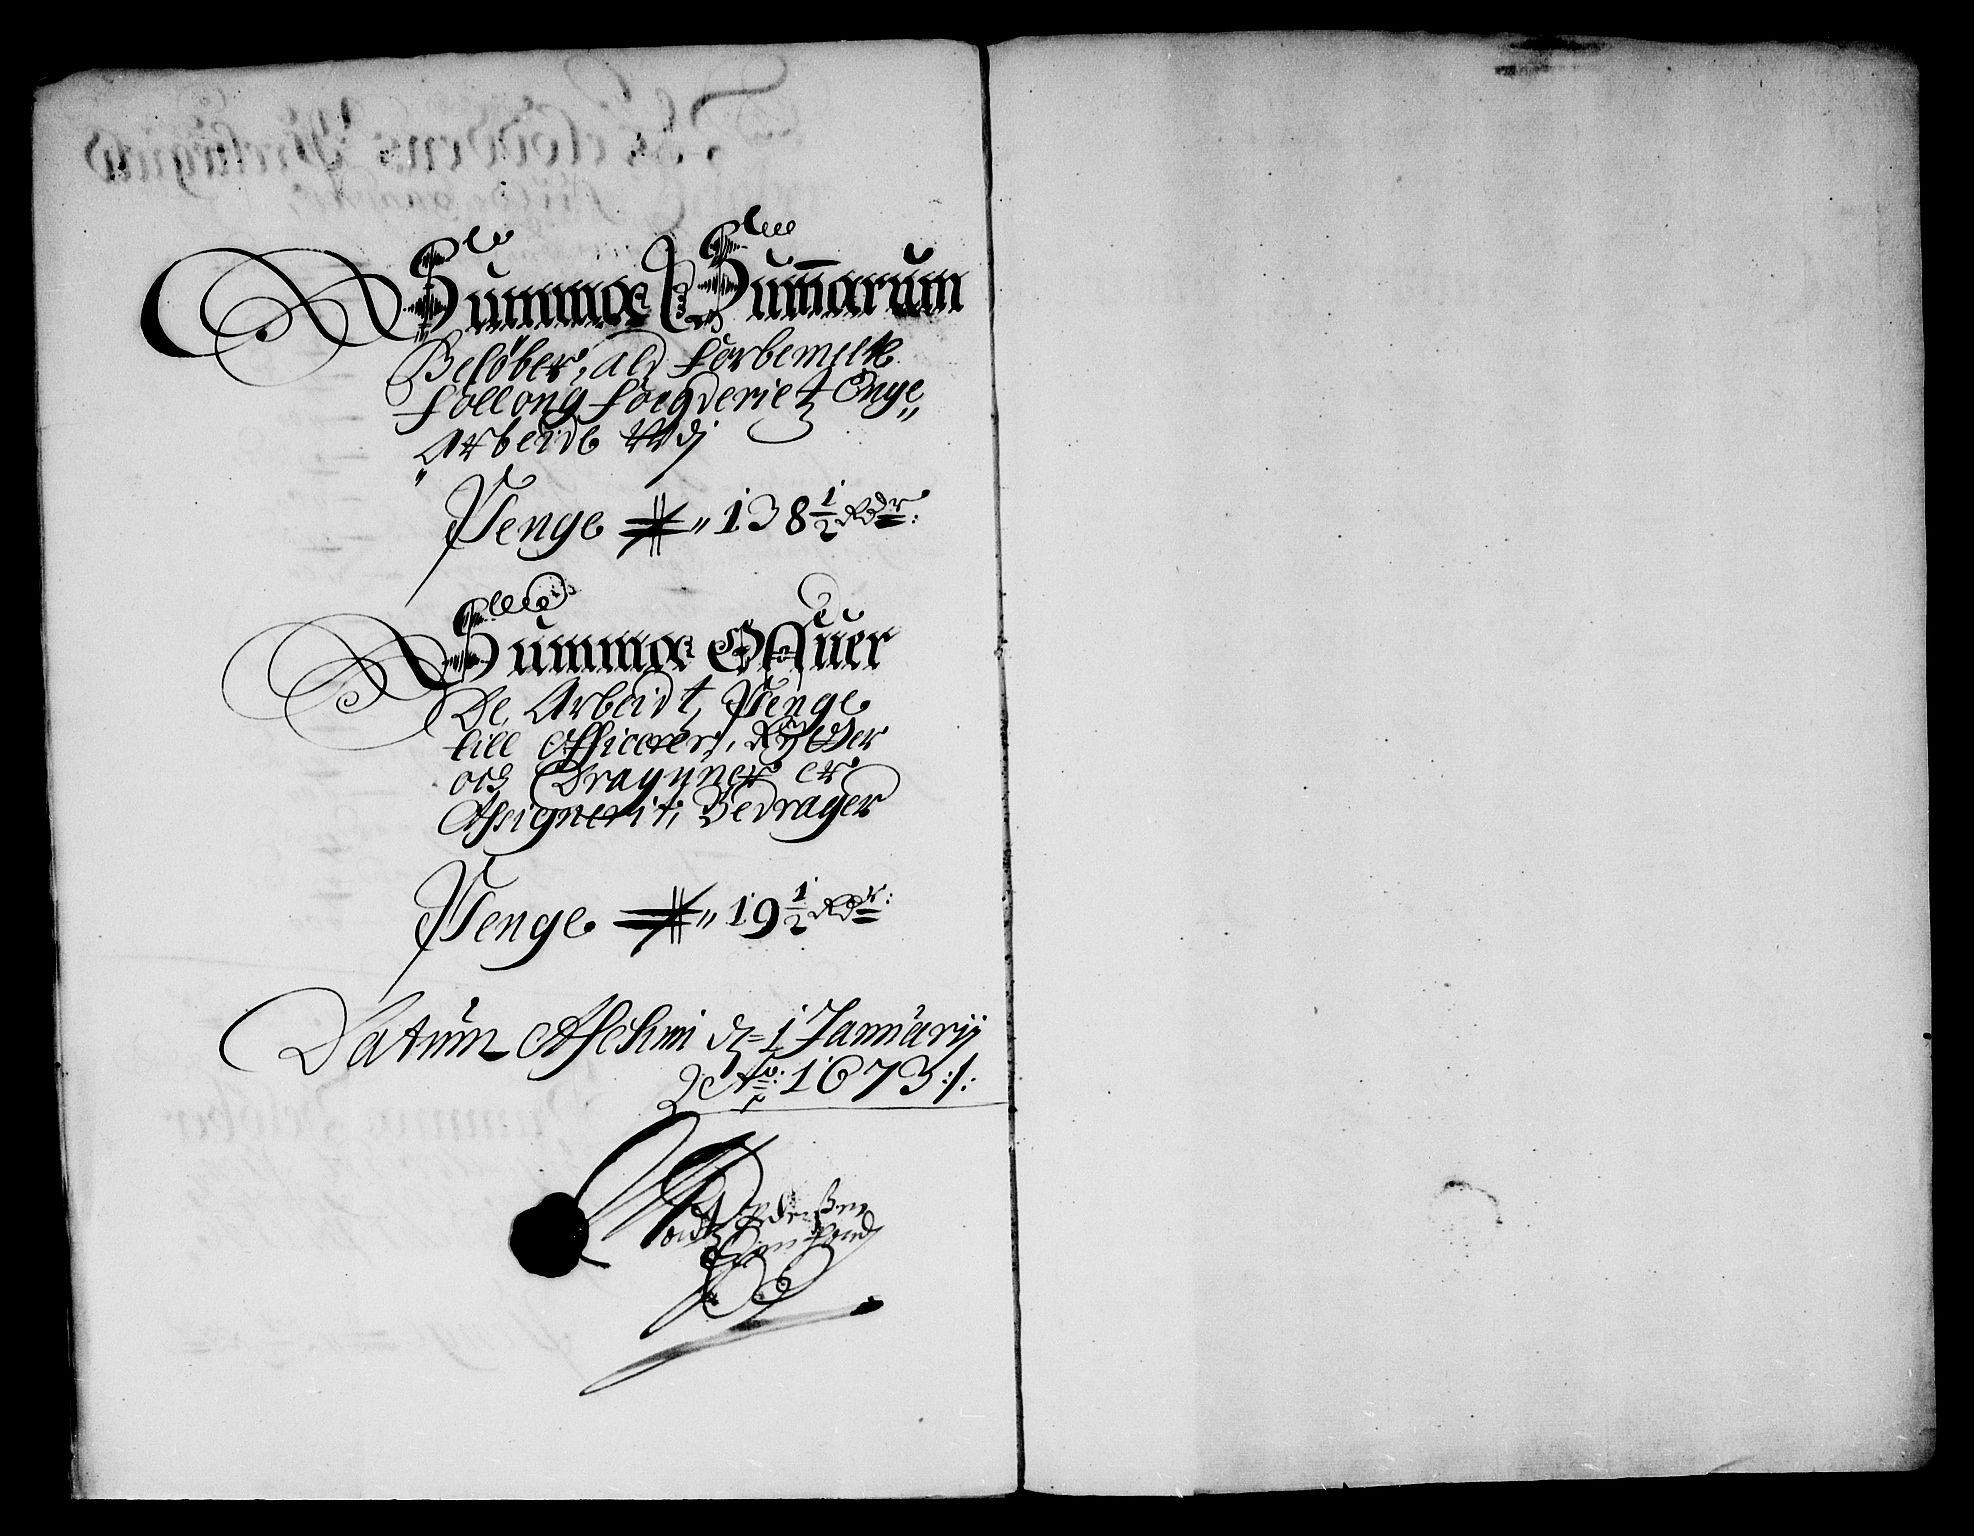 Summa Summarum
Beløber, ald forbemelte
follong fougderietz Enge
Arbeids
Penge 138½ Rdr:
Summa Offuer
De Arbeidtz Penge
till Officerer, Rytter
och Draguner er
Assignerit, Bedrager
Penge 19½ Rdr:
Datum Aschim d= 1 Januarij
Ao: 1673:/:
Pederßen
Egen haand